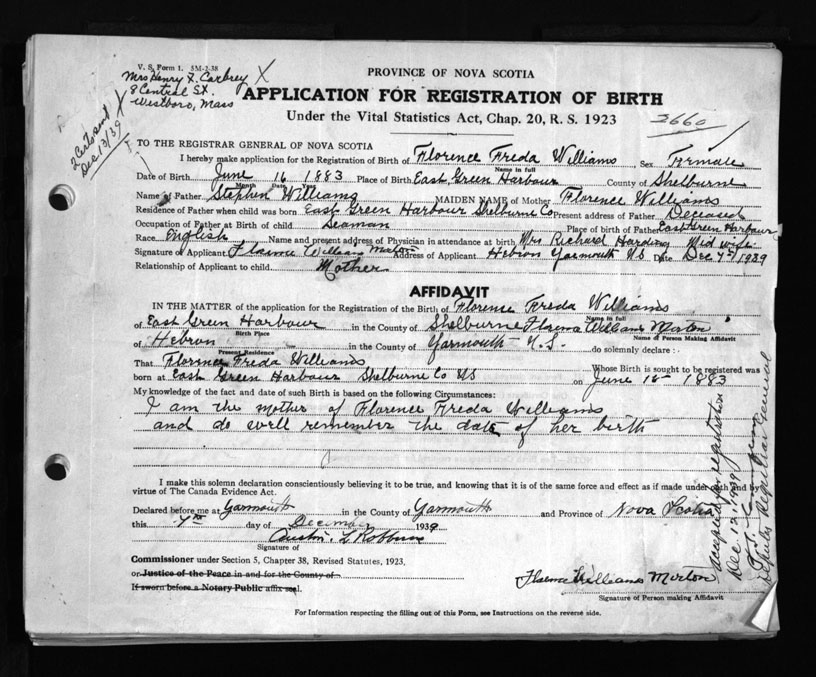 V. S. Form 1. 5M-2-38
Mrs Henry F. Carbrey X
8 Central St. X
Westboro, Mass
2 Certs sent
Dec 13/39
PROVINCE OF NOVA SCOTIA
APPLICATION FOR REGISTRATION OF BIRTH
Under the Vital Statistics Act, Chap. 20, R. S. 1923
2660
TO THE REGISTRAR GENERAL OF NOVA SCOTIA
I hereby make application for the Registration of Birth of Florence Freda Williams Sex Female
Name in full
Date of Birth June 16 1883 Place of Birth East Green Harbour County of Shelburne
Month Date
Name of Father Stephen Williams MAIDEN NAME of Mother Florence Williams
Residence of Father when child was born East Green Harbour Shelburne Co Present address of Father Deceased
Occupation of Father at Birth of child Seaman Place of birth of Father East Green Harbour
Race English Name and present address of Physician in attendance at birth Mrs Richard Harding Mid wife
Signature of Applicant Williams Morton Address of Applicant Hebron Yarmouth NS Date Dec 7th 1939
Relationship of Applicant to child Mother
AFFIDAVIT
IN THE MATTER of the application for the Registration of the Birth of Florence Freda Williams
Name in full
of East Green Harbour in the County of Shelburne Williams Morton
Birth Place Name of Person Making Affidavit
of Hebron in the County of Yarmouth N.S. do solemnly declare :—
Present Residence
That Florence Freda Williams Whose Birth is sought to be registered was
born at East Green Harbour Shelburne Co NS on June 16 1883
My knowledge of the fact and date of such Birth is based on the following Circumstances:
I am the mother of Florence Freda Williams
and do well remember the date of her birth
I make this solemn declaration conscientiously believing it to be true, and knowing that it is of the same force and effect as if made under oath and by
virtue of The Canada Evidence Act.
Declared before me at Yarmouth in the County of Yarmouth and Province of Nova Scotia
this 7th day of 1939
Austin L Robbins
Signature of
Commissioner under Section 5, Chapter 38, Revised Statutes, 1923,
or Justice of the Peace in and for the County of
If sworn before a Notary Public affix seal.
Williams Morton
Signature of Person making Affidavit
For Information respecting the filling out of this Form, see Instructions on the reverse side.
Accepted for registration
Dec 12, 1939
Deputy Registrar General